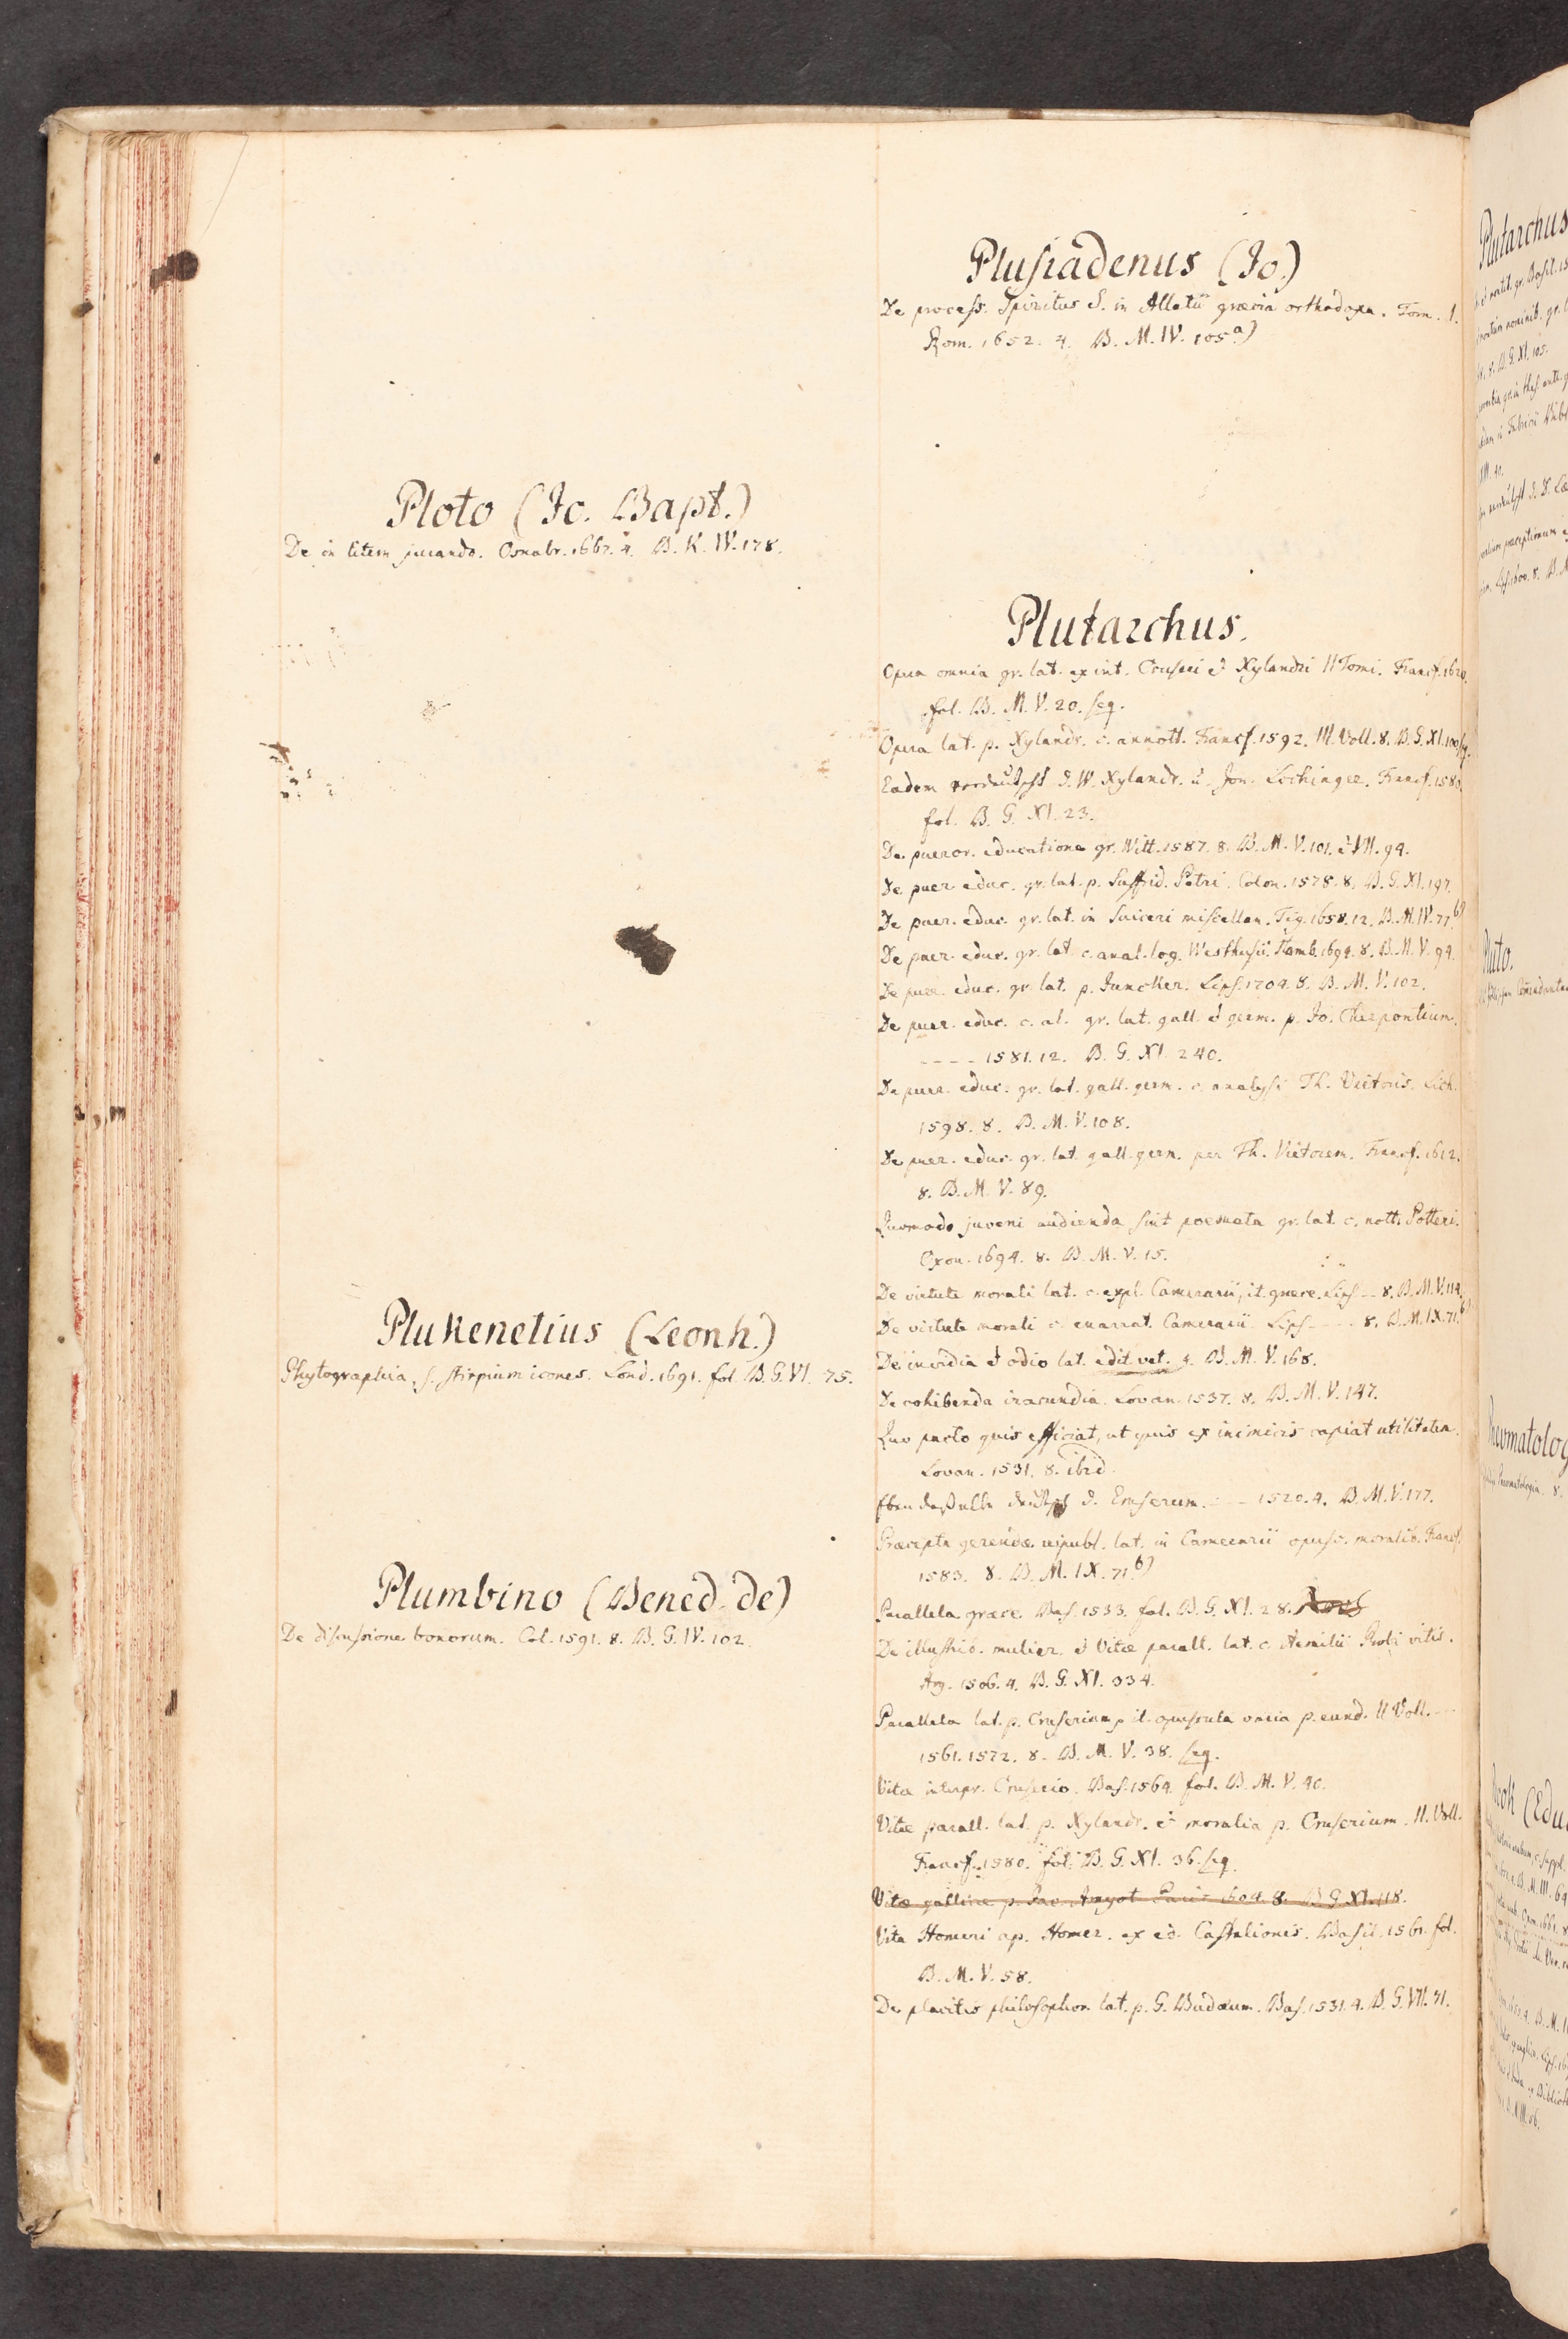 Ploto (Jo. Bapt.)
De in litem jurando. Osnabr. 1667. 4. B. K. IV. 178.
Plukenetius (Leonh.)
Phytographia, s. stirpium icones. Lond. 1691. fol. B. G. VI. 75.
Plumbino (Bened. de)
De discussione bonorum. Col. 1591. 8. B. G. IV. 102.
Plusiadenus (Jo.)
De process. Spiritus S. in Allatii græcia orthodoxa. Tom. I.
Rom. 1652. 4. B. M. IV. 105 a)
Plutarchus.
Opera omnia gr. lat. ex int. Cruserii et Xylandri II Tomi. Francf. 1620.
fol. B. M. V. 20. seq.
Opera lat. p. Xylandr. c. annott. Francf. 1592. III. Voll. 8. B. G. XI. 100 sq.
Eadem verdeutscht d. W. Xylandr. u. Jon. Lochinger. Francf. 1580.
fol. B. G. XI. 23.
De pueror. educatione gr. Witt. 1587. 8. B. M. V. 101. et VII. 94.
De puer. educ. gr. lat. p. Suffrid. Petri. Colon. 1578. 8. B. G. XI. 197.
De puer. educ. gr. lat. in Suiceri miscellan. Tig. 1658. 12. B. M. IV. 77 b)
De puer. educ. gr. lat. c. anal. log. Westhusii. Hamb. 1694. 8. B. M. V. 94.
De puer. educ. gr. lat. p. Juncker. Lips. 1704. 8. B. M. V. 102.
De puer. educ. c. al. gr. lat. gall. et germ. p. Jo. Cherpontium.
- - - - 1581. 12. B. G. XI. 240.
De puer. educ. gr. lat. gall. germ. c. analysi Th. Vietoris. Lich.
1598. 8. B. M. V. 108.
De puer. educ. gr. lat. gall. germ. per Th. Vietorem. Francf. 1612.
8. B. M. V. 89.
Quomodo juveni audienda sint poemata gr. lat. c. nott. Potteri.
Oxon. 1694. 8. B. M. V. 15.
De virtute morali lat. c. expl. Camerarii, it. græce. Lips -- 8. B. M. V. 114.
De virtute morali c. enarrat. Camerarii Lips - - - 8. B. M. IX. 71. b)
De invidia et odio lat. edit. vet. 4. B. M. V. 168.
De cohibenda iracundia. Lovan. 1537. 8. B. M. V. 147.
Quo pacto quis efficiat, ut quis ex inimicis capiat utilitatem.
Lovan. 1531. 8. ibid.
Ebendasselbe deutsch d. Emserum. - - - 1520. 4. B. M. V. 177.
Præcepta gerendæ reipubl. lat. in Camerarii opusc. moralib. Francf.
1583. 8. B. M. IX. 71. b)
Parallela græce. Bas. 1533. fol. B. G. XI. 28.
De illustrib. mulier. et Vitæ parall. lat. c. Aemilii Probi vitis.
Arg. 1506. 4. B. G. XI. 334.
Parallela lat. p. Cruserium, it. opuscula varia p. eund. II Voll. - -
1561. 1572. 8. B. M. V. 38. seq.
Vitæ interpr. Cruserio. Bas. 1564. fol. B. M. V. 40.
Vitæ parall. lat. p. Xylandr. et moralia p. Cruserium. II. Voll.
Francf. 1580. fol. B. G. XI. 36. seq.
Vitæ gallice p. Jac. Amyot Paris 1604. 8. B. G. XI. 118.
Vita Homeri ap. Homer. ex ed. Castalionis. Basil. 1561. fol.
B. M. V. 58.
De placitis philosophor. lat. p. G. Budæum. Bas. 1531. 4. B. G. VII. 31.
Plutarchus
Pluto.